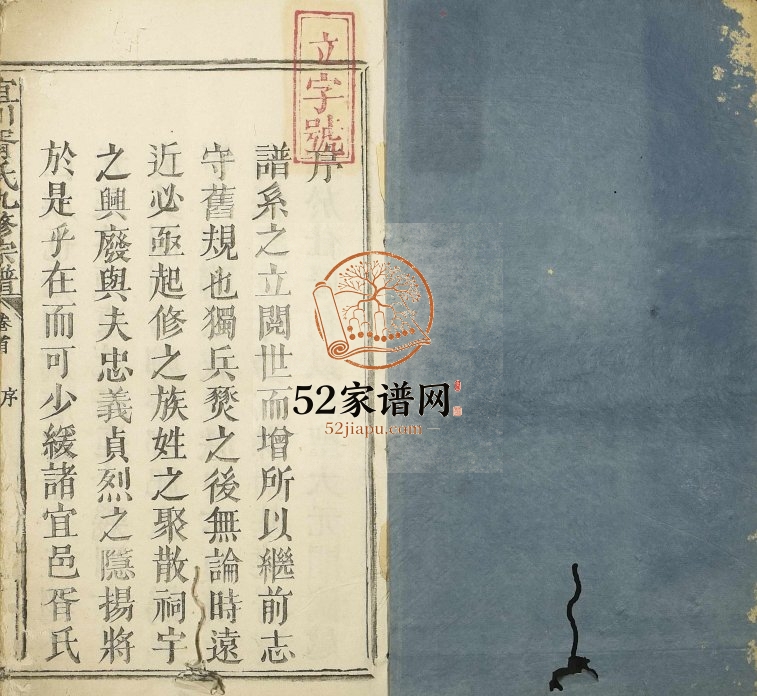 立字號
序
譜系之立閱世而增所以繼前志
守舊規也獨兵燹之後無論時遠
近必亟起修之族姓之聚散祠宇
之興廢與夫忠義貞烈之隱揚將
於是乎在而可少緩諸宜邑胥氏
宜川胥氏九修宗譜 卷首 序
52家谱网
52jiapu.com